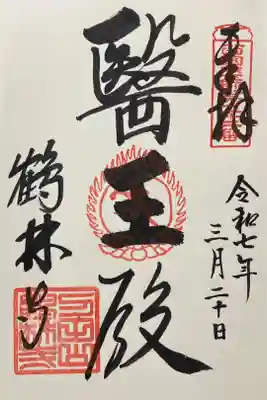 奉拝
令和七年
三月二十日
醫王殿
鶴林寺